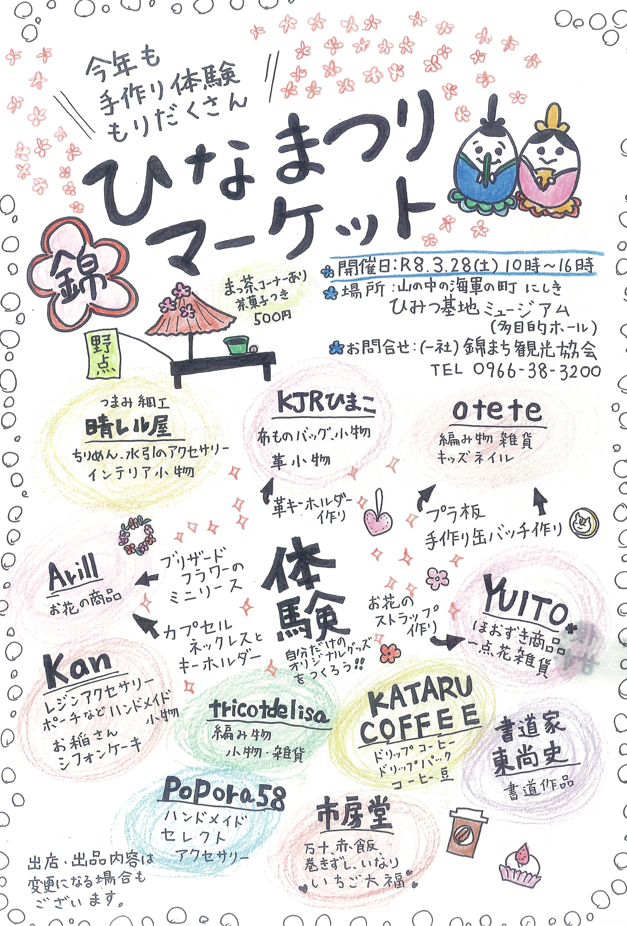 今年も
手作り体験
もりだくさん
ひなまつり
マーケット
錦
まっ茶コーナーあり
茶菓子つき
500円
野点
開催日:R8.3.28(土) 10時〜16時
場所:山の中の海軍の町 にしき
ひみつ基地ミュージアム
(多目的ホール)
お問合せ:(一社)錦まち観光協会
TEL 0966-38-3200
つまみ細工
晴レル屋
ちりめん、水引のアクセサリー
インテリア小物
KJRひまこ
布ものバッグ、小物
革小物
otete
編み物 雑貨
キッズネイル
革キーホルダー
作り
プラ板
手作り缶バッチ作り
Arill
お花の商品
ブリザード
フラワーの
ミニリース
カプセル
ネックレスと
キーホルダー
体験
自分だけの
オリジナルグッズ
をつくろう!!
お花の
ストラップ
作り
YUITO*
ほおずき商品
一点花雑貨
Kan
レジンアクセサリー
ポーチなどハンドメイド
小物
お稲さん
シフォンケーキ
tricotdelisa
編み物
小物・雑貨
KATARU
COFFEE
ドリップコーヒー
ドリップパック
コーヒー豆
書道家
東尚史
書道作品
PoPora58
ハンドメイド
セレクト
アクセサリー
市房堂
万十、赤飯、
巻きずし、いなり
いちご大福
出店・出品内容は
変更になる場合も
ございます。